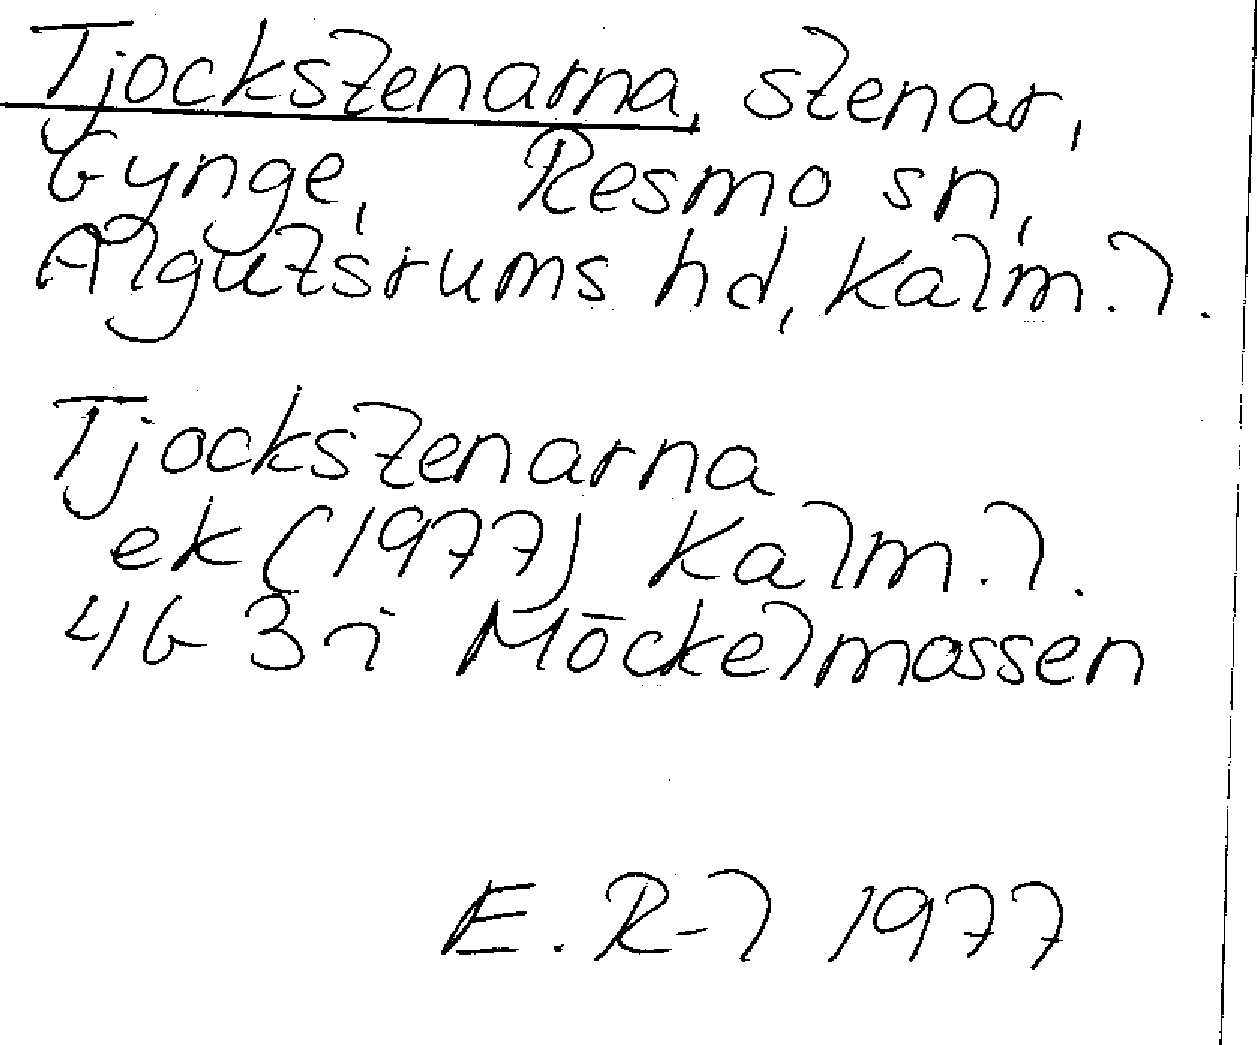 Tjockstenarna, stenar,
Gynge, Resmo sn,
Algutsrums hd, Kalm. l.
Tjockstenarna
ek (1977) Kalm. l.
4G 3i Möckelmossen
E. R-l 1977